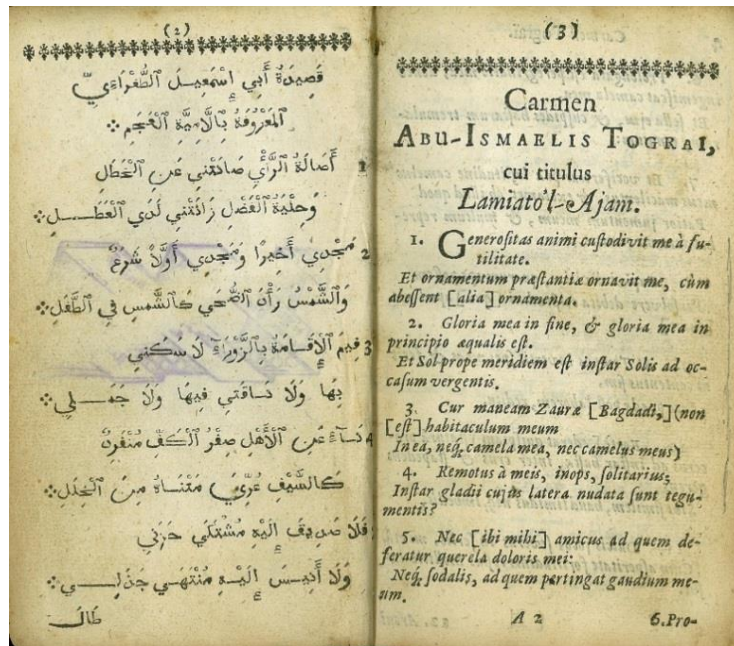 (2)
قَصِيدَةُ أَبِي إِسْمَعِيلَ ٱلطُّغْرَاءِيّ
ٱلْمَعْرُوفَةُ بِٱلَّامِيَّةِ ٱلْعَجَمِ
1 أَصَالَةُ ٱلرَّأْيِ صَانَتْنِي عَنِ ٱلْخَطَلِ
وَحِلْيَةُ ٱلْفَضْلِ زَانَتْنِي لَدَي ٱلْعَطَلِ
2 مَجْدِي أَخِيرًا وَمَجْدِي أَوَّلًا شَرَعٌ
وَٱلشَّمْسُ رَأْدَ ٱلضُّحَي كَٱلشَّمْسِ فِي ٱلطَّفَلِ
3 فِيمَ ٱلْإِقَامَةُ بِٱلزَّوْرَاءِ لَا سَكَنِي
بِهَا وَلَا نَاقَتِي فِيهَا وَلَا جَمَلِي
4 نَاءٍ عَنِ ٱلْأَهْلِ صِفْرُ ٱلْكَفِّ مُنْفَرِدٌ
كَٱلسَّيْفِ عُرِّيَ مَتْنَاهُ مِنَ ٱلْخِلَلِ
5 فَلَا صَدِيقَ إِلَيْهِ مُشْتَكَي حَزَنِي
وَلَا أَنِيسَ إِلَيْهِ مُنْتَهَي جَذَلِي
طَالَ
(3)
Carmen
ABU-ISMAELIS TOGRAI,
cui titulus
Lamiato'l-Ajam.
1. Generositas animi custodivit me à fu-
tilitate.
Et ornamentum præstantiæ ornavit me, cùm
abessent [alia] ornamenta.
2. Gloria mea in fine, & gloria mea in
principio æqualis est.
Et Sol prope meridiem est instar Solis ad oc-
casum vergentis.
3. Cur maneam Zauræ [Bagdadi,] (non
[est] habitaculum meum
In ea, neq; camela mea, nec camelus meus)
4. Remotus à meis, inops, solitarius;
Instar gladii cujus latera nudata sunt tegu-
mentis?
5. Nec [ibi mihi] amicus ad quem de-
feratur querela doloris mei:
Neq; sodalis, ad quem pertingat gaudium me-
um.
A 2 6. Pro-